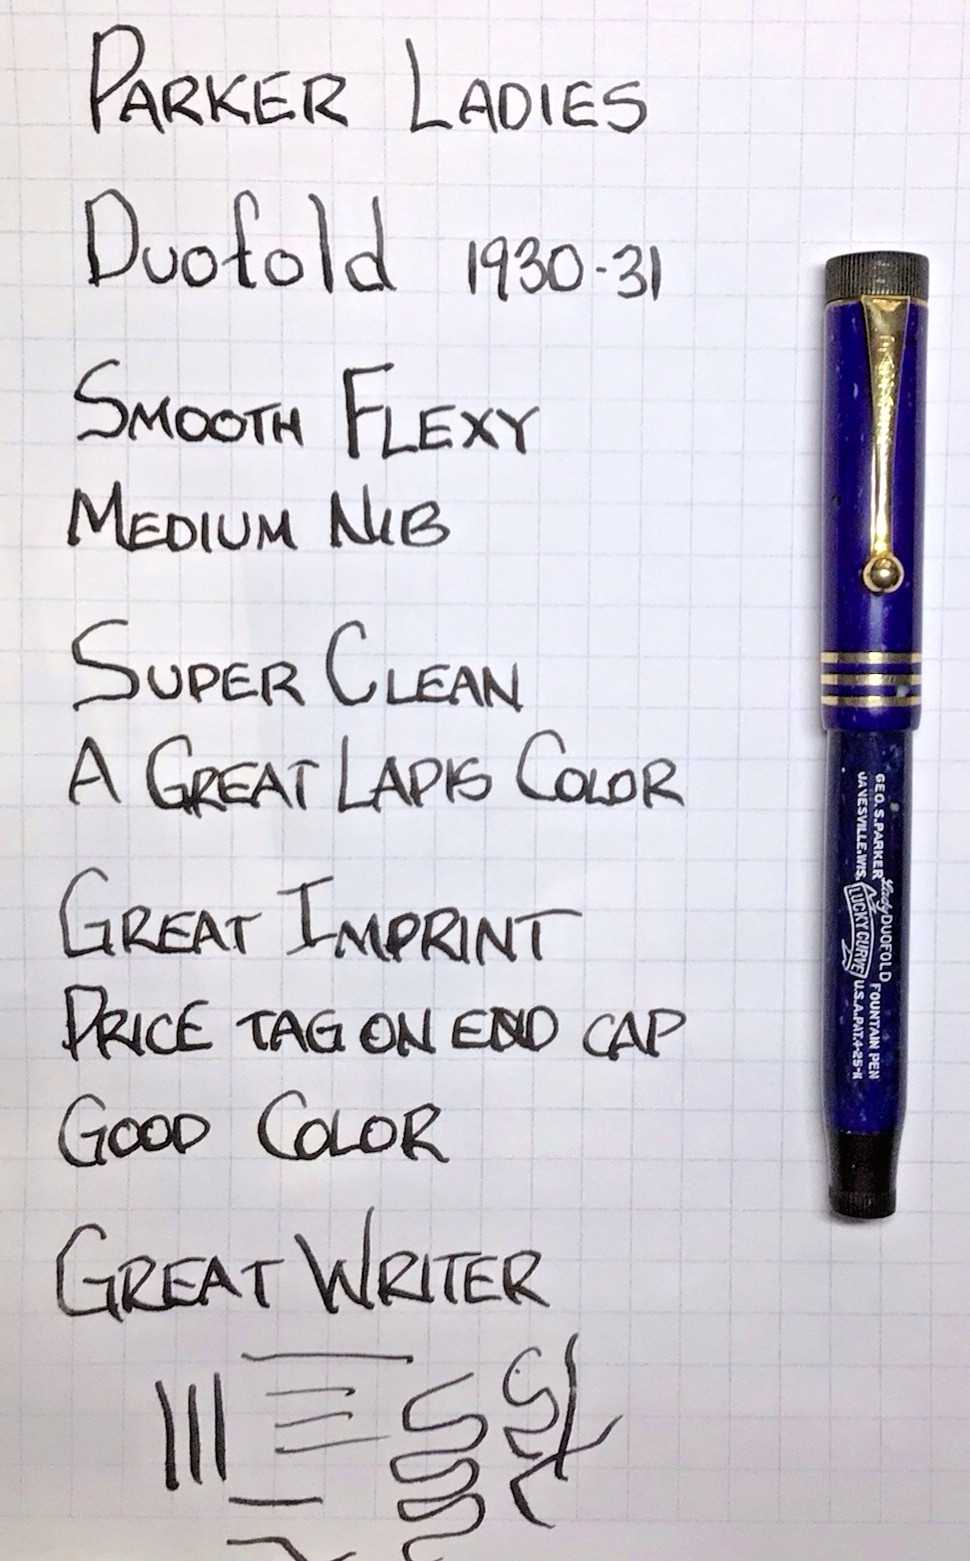 PARKER LADIES
Duofold 1930-31
SMOOTH FLEXY
MEDIUM NIB
SUPER CLEAN
A GREAT LAPIS COLOR
GREAT IMPRINT
PRICE TAG ON END CAP
GOOD COLOR
GREAT WRITER
PARKER
GEO. S. PARKER Lady DUOFOLD FOUNTAIN PEN
JANESVILLE, WIS. LUCKY CURVE U.S.A. PAT. 4-25-11